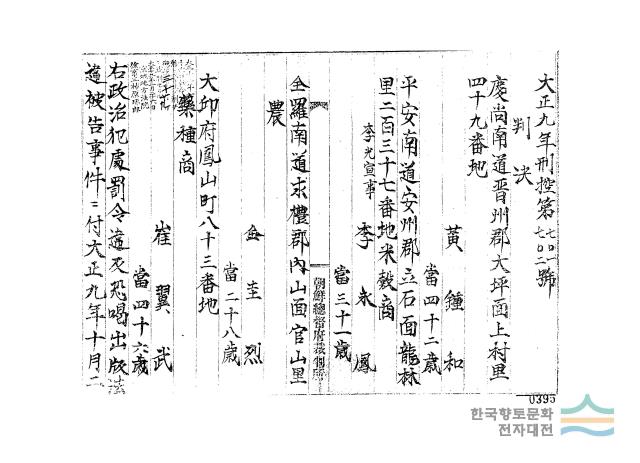 大正九年刑控第七〇一 七〇二號
判決
慶尚南道晋州郡大坪面上村里
四十九番地
黃鍾和
當四十二歲
平安南道安州郡立石面龍林
里二百三十七番地米穀商
李光宣事 李永鳳
當三十一歲
朝鮮總督府裁判所
全羅南道求禮郡內山面官山里
農
金圭烈
當二十八歲
大邱府鳳山町八十三番地
藥種商
崔翼武
當四十六歲
右政治犯處罰令違反恐喝出版法
違被告事件ニ付大正九年十月二
0395
한국향토문화
전자대전